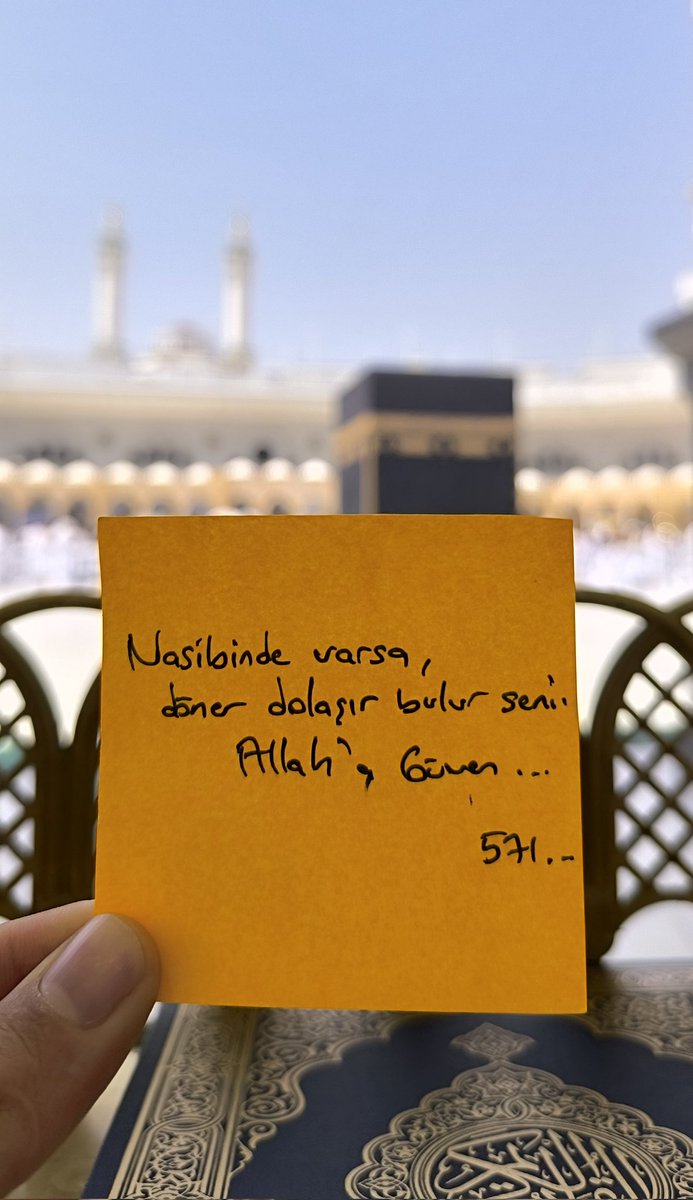 Nasibinde varsa,
döner dolaşır bulur seni..
Allah'a Güven ...
571..
القرآن الكريم